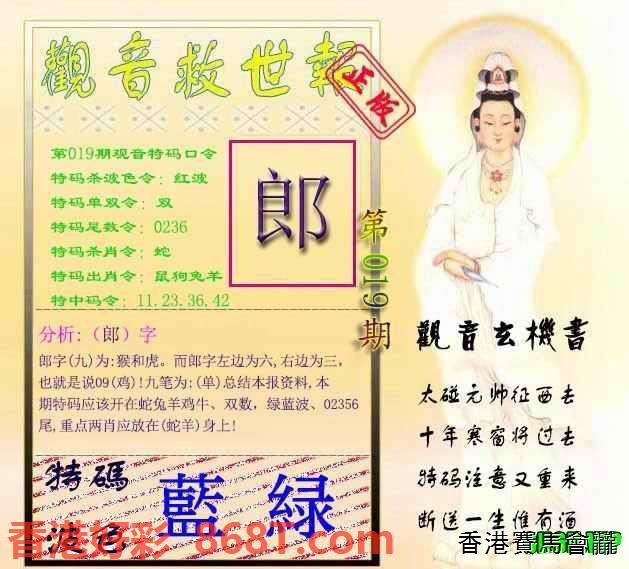 觀音救世報
正版
第019期观音特码口令
特码杀波色令：红波
特码单双令：双
特码尾数令：0236
特码杀肖令：蛇
特码出肖令：鼠狗兔羊
特中码令：11.23.36.42
郎
第019期
分析：（郎）字
郎字(九)为:猴和虎。而郎字左边为六,右边为三，
也就是说09(鸡)!九笔为:(单)总结本报资料,本
期特码应该开在蛇兔羊鸡牛、双数，绿蓝波、02356
尾,重点两肖应放在(蛇羊)身上!
特碼
波色
藍 緑
觀音玄機書
太碰元帅征西去
十年寒窗将过去
特码注意又重来
断送一生惟有酒
香港好彩 8681.com
香港賽馬會